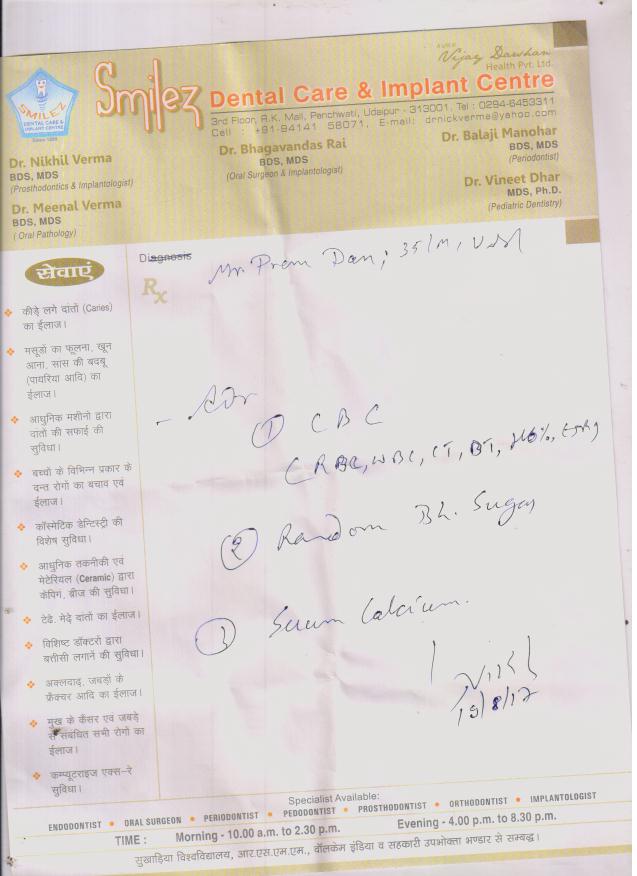 AVNS
Vijay Darshan
Health Pvt. Ltd.
SMILEZ
DENTAL CARE &
IMPLANT CENTRE
Smilez Dental Care & Implant Centre
3rd Floor, R.K. Mall, Panchwati, Udaipur - 313001, Tel : 0294-6453311
Cell : +91-94141 58071, E-mail: drnickverma@yahoo.com
Dr. Nikhil Verma
BDS, MDS
(Prosthodontics & Implantologist)
Dr. Meenal Verma
BDS, MDS
( Oral Pathology)
Dr. Bhagavandas Rai
BDS, MDS
(Oral Surgeon & Implantologist)
Dr. Balaji Manohar
BDS, MDS
(Periodontist)
Dr. Vineet Dhar
MDS, Ph.D.
(Pediatric Dentistry)
सेवाएं
कीड़े लगे दांतों (Caries)
का ईलाज।
मसूडों का फूलना, खून
आना, सांस की बदबू
(पायरिया आदि) का
ईलाज।
आधुनिक मशीनो द्वारा
दांतों की सफाई की
सुविधा।
बच्चों के विभिन्न प्रकार के
दन्त रोगों का बचाव एवं
ईलाज।
कॉस्मेटिक डेन्टिस्ट्री की
विशेष सुविधा।
आधुनिक तकनीकी एवं
मेटेरियल (Ceramic) द्वारा
केपिंग, ब्रीज की सुविधा।
टेढे. मेढे़ दांतों का ईलाज।
विशिष्ट डॉक्टरों द्वारा
बत्तीसी लगाने की सुविधा।
अक्लदाढ़, जबड़ों के
फ्रेंक्चर आदि का ईलाज।
मुख के कैंसर एवं जबडे़
से संबंधित सभी रोगों का
ईलाज।
कम्प्यूटराइज एक्स-रे
सुविधा।
Diagnosis
Rx
Mr. Prem Dan; 35/M,
- Adv
① CBC
C RBC, WBC, CT, BT, Hb%, ESR)
② Random Bl. Sugar
③ Serum Calcium.
19/8/17
Specialist Available:
ENDODONTIST ● ORAL SURGEON ● PERIODONTIST ● PEDODONTIST ● PROSTHODONTIST ● ORTHODONTIST ● IMPLANTOLOGIST
TIME : Morning - 10.00 a.m. to 2.30 p.m. Evening - 4.00 p.m. to 8.30 p.m.
सुखाड़िया विश्वविद्यालय, आर.एस.एम.एम., वॉलकेम इंडिया व सहकारी उपभोक्ता भण्डार से सम्बद्ध।